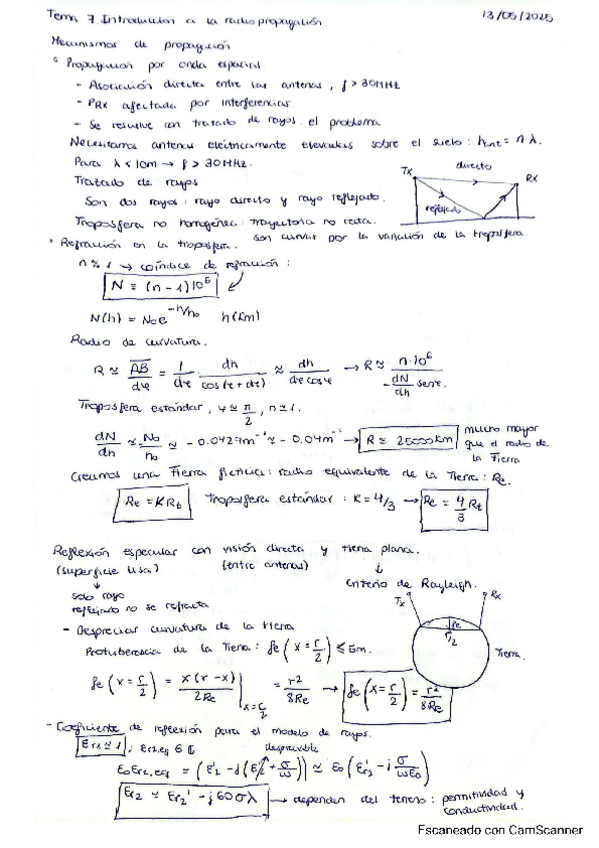 Tema 7 Introduccion a la radiopropagación
13/05/2025
Mecanismos de propagación
° Propagacion por onda espacial
- Asociación directa entre las antenas, f > 30MHz
- PRX afectada por interferencias
- Se resuelve con trazado de rayos el problema
Necesitamos antenas electricamente elevadas sobre el suelo: hant = n λ.
Para λ < 10m → f > 30MHz.
Trazado de rayos
Son dos rayos: rayo directo y rayo reflejado.
Tx directo Rx
reflejado
Troposfera no homogénea: trayectoria no recta.
Son curvas por la variación de la troposfera.
° Refracción en la troposfera.
n ≈ 1 → coíndice de refracción:
N = (n-1)10⁶
N(h) = N₀e^(-h/h₀) h(km)
Radio de curvatura.
R ≈ AB/dφ = 1/dφ · dh/cos(φ+dφ) ≈ dh/dφ cosφ → R ≈ n·10⁶/(-dN/dh senφ)
Troposfera estándar, φ ≃ π/2, n ≃ 1.
dN/dh ≈ N₀/h₀ ≈ -0.0427m⁻¹ ≈ -0.04m⁻¹ → R ≃ 25000km
mucho mayor
que el radio de
la Tierra
Creamos una Tierra ficticia: radio equivalente de la Tierra: Re.
Re = KRt Troposfera estándar: K = 4/3 → Re = 4/3 Rt
Reflexión especular con visión directa y tierra plana.
(superficie lisa) (entre antenas)
Criterio de Rayleigh.
solo rayo
reflejado no se refracta
Tx Rx
- Despreciar curvatura de la tierra
Protuberancia de la Tierra: fe (x = r/2) ≤ 5m.
fe r/2 Tierra
fe (x = r/2) = x(r-x)/2Re |x=r/2 = r²/8Re → fe (x = r/2) = r²/8Re
- Coeficiente de reflexión para el modelo de rayos.
Er1 ≃ 1 ; Er2,eq ∈ ℂ despreciable
E₀Er2,eq = (E'2 - j(E''2 + σ/ω)) ≃ E₀(Er2' - j σ/ωE₀)
Er2 ≃ Er2' - j60σλ → dependen del terreno: permitividad y
conductividad.
Escaneado con CamScanner